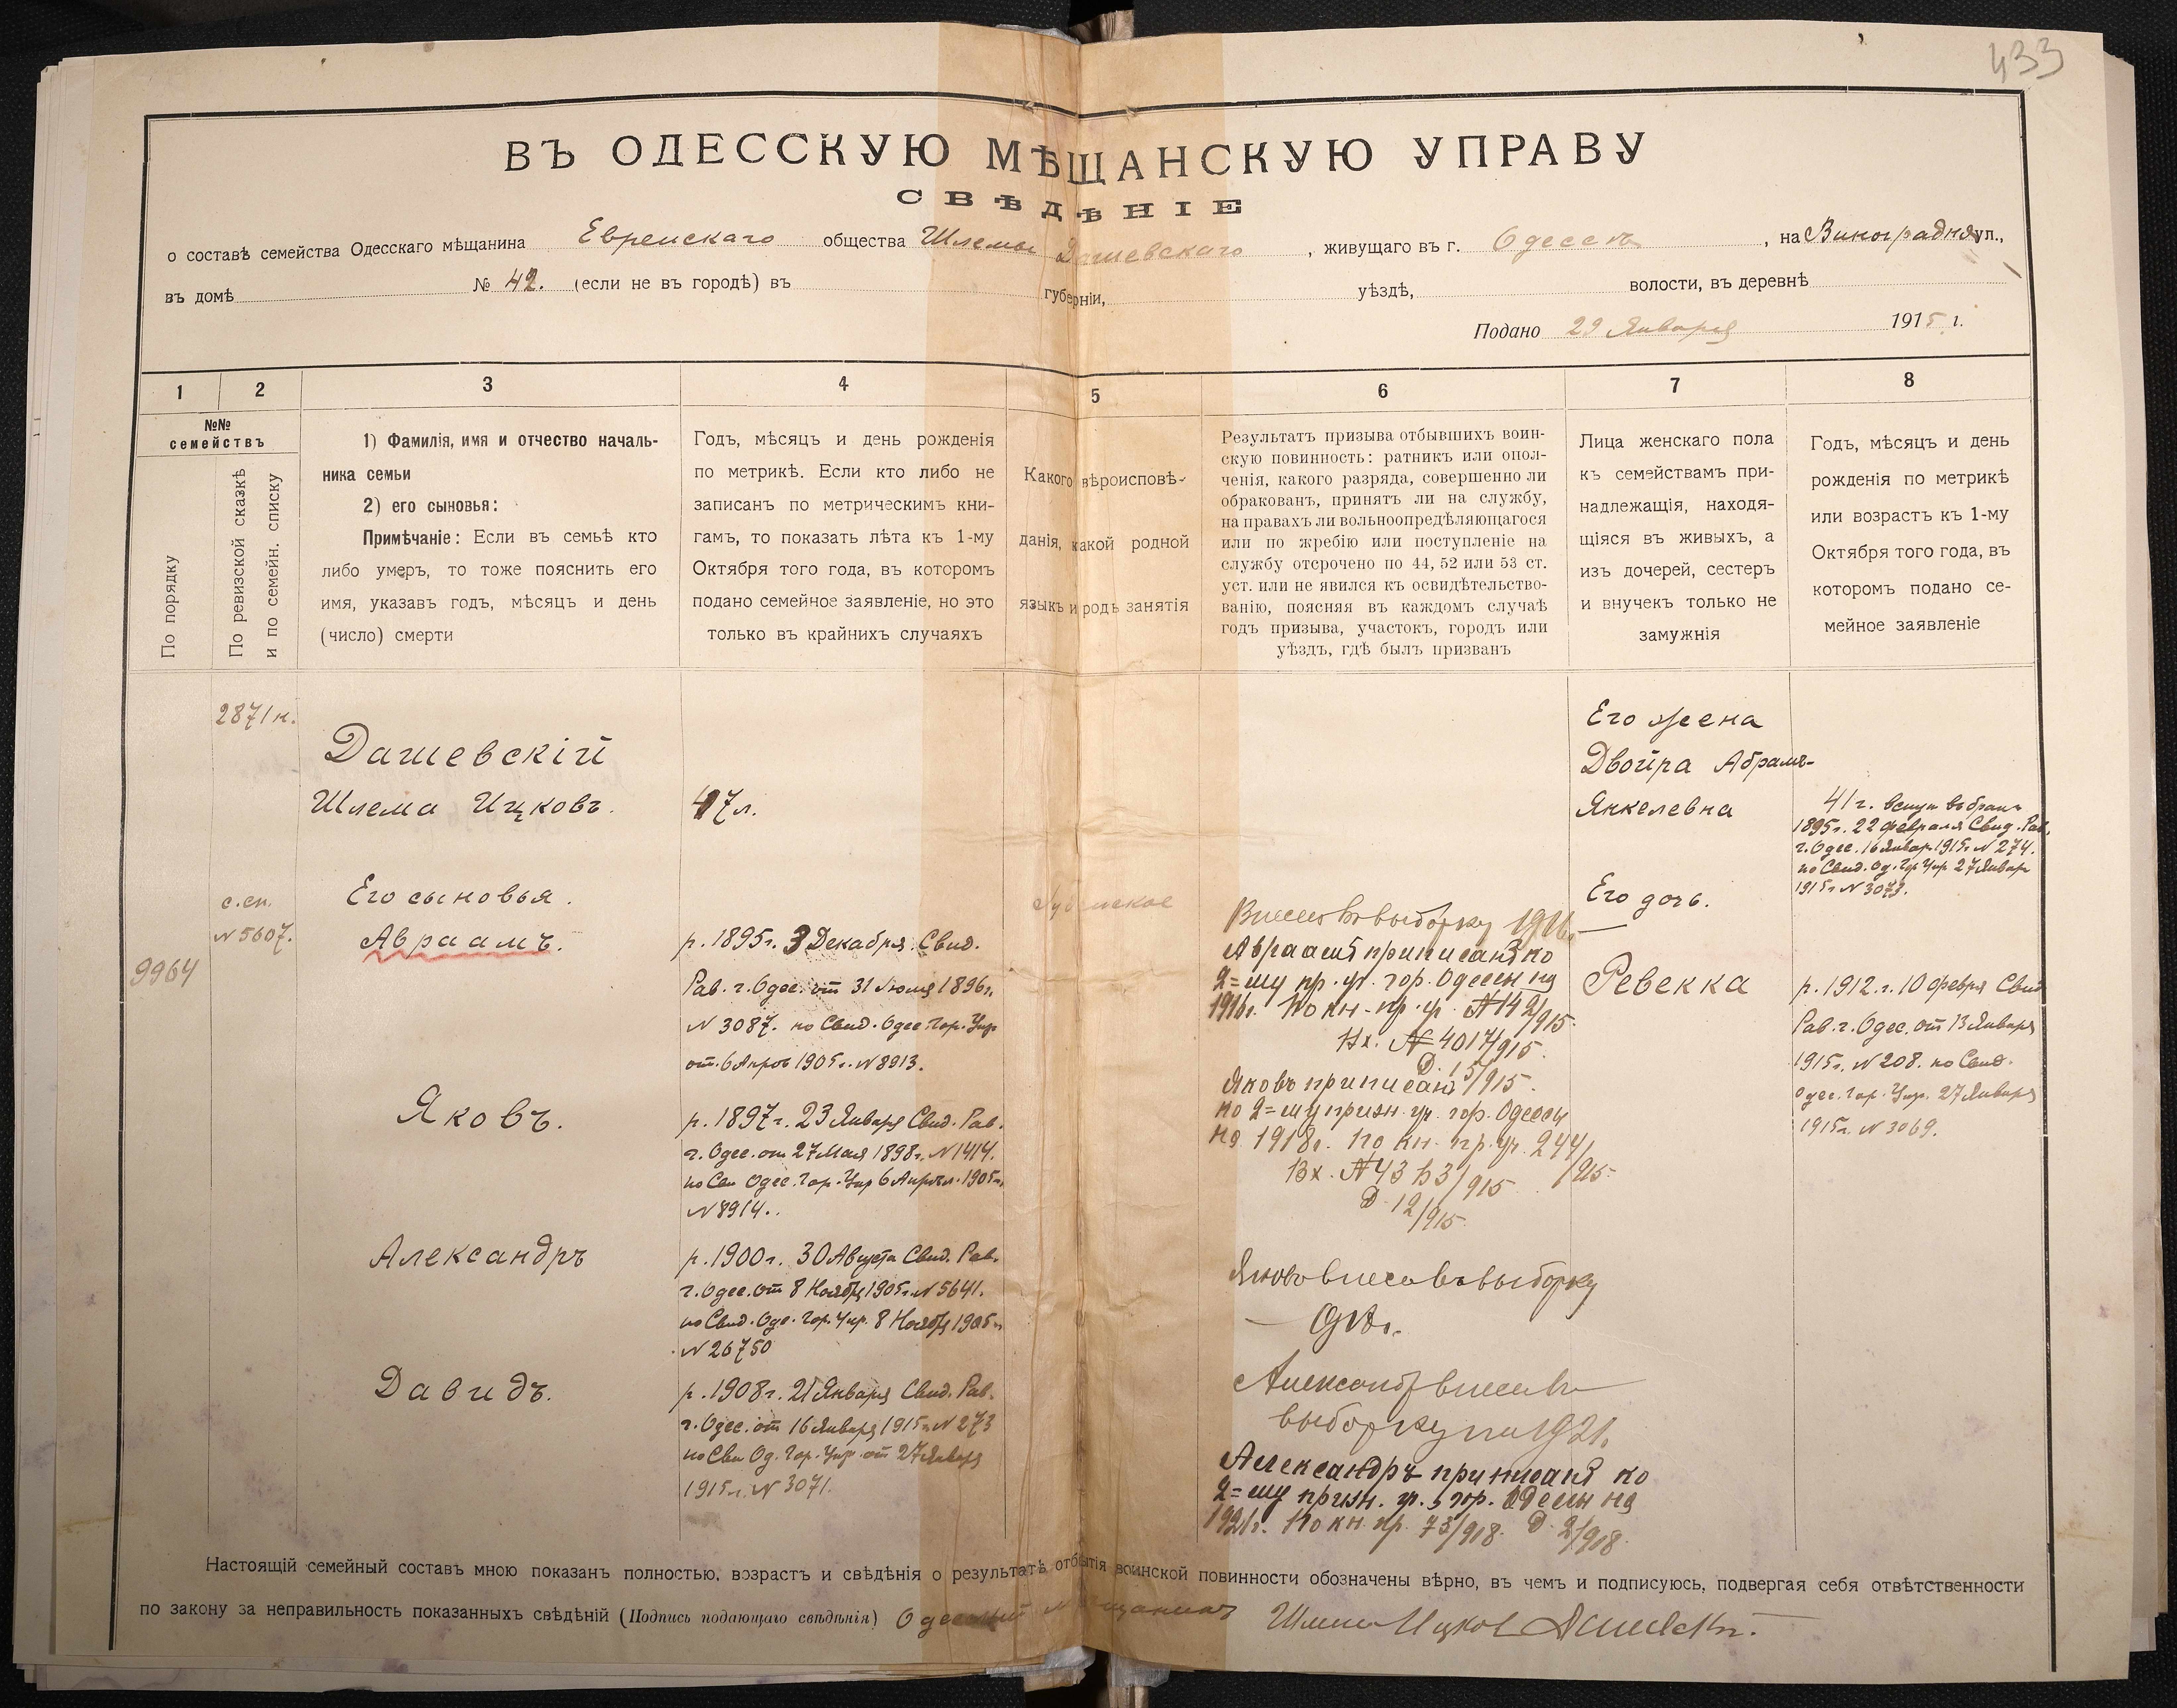 433
ВЪ ОДЕССКУЮ МѢЩАНСКУЮ УПРАВУ
СВѢДѢНІЕ
о составѣ семейства Одесскаго мѣщанина Еврейскаго общества Шлемы Дашевскаго, живущаго въ г. Одессѣ, на Виноградная ул.,
въ домѣ № 42. (если не въ городѣ) въ губерніи, уѣздѣ, волости, въ деревнѣ
Подано 29 Января 1915 г.
1 2 3 4 5 6 7 8
№№ семействъ
По порядку
По ревизской сказкѣ
и по семейн. списку
1) Фамилія, имя и отчество началь-
ника семьи
2) его сыновья:
Примѣчаніе: Если въ семьѣ кто
либо умеръ, то тоже пояснить его
имя, указавъ годъ, мѣсяцъ и день
(число) смерти
Годъ, мѣсяцъ и день рожденія
по метрикѣ. Если кто либо не
записанъ по метрическимъ кни-
гамъ, то показать лѣта къ 1-му
Октября того года, въ которомъ
подано семейное заявленіе, но это
только въ крайнихъ случаяхъ
Какого вѣроисповѣ-
данія, какой родной
языкъ и родъ занятія
Результатъ призыва отбывшихъ воин-
скую повинность: ратникъ или опол-
ченія, какого разряда, совершенно ли
обракованъ, принятъ ли на службу,
на правахъ ли вольноопредѣляющагося
или по жребію или поступленіе на
службу отсрочено по 44, 52 или 53 ст.
уст. или не явился къ освидѣтельство-
ванію, поясняя въ каждомъ случаѣ
годъ призыва, участокъ, городъ или
уѣздъ, гдѣ былъ призванъ
Лица женскаго пола
къ семействамъ при-
надлежащія, находя-
щіяся въ живыхъ, а
изъ дочерей, сестеръ
и внучекъ только не
замужнія
Годъ, мѣсяцъ и день
рожденія по метрикѣ
или возрастъ къ 1-му
Октября того года, въ
которомъ подано се-
мейное заявленіе
9964
2871 н.
с.сп.
№ 5607.
Дашевскій
Шлема Ицковъ.
Его сыновья.
Авраамъ.
Яковъ.
Александръ
Давидъ.
47 л.
р. 1895 г. 3 Декабря. Свид.
Рав. г. Одес. от 31 Іюля 1896 г.
№ 3087. по Свид. Одес. Гор. Упр.
от. 6 Апрѣ 1905 г. № 8913.
р. 1897 г. 23 Января Свид. Рав.
г. Одес. от 27 Мая 1898 г. № 1414.
по Сви Одес. Гор. Упр 6 Апрѣл. 1905 г.
№ 8914.
р. 1900 г. 30 Августа Свид. Рав.
г. Одес. от 8 Ноябр 1905 г. № 5641.
по Свид. Оде. Гор. Упр. 8 Ноябр 1905 г.
№ 26750
р. 1908 г. 21 Января Свид. Рав.
г. Одес. от 16 Января 1915 г. № 273
по Сви Од. Гор. Упр. от 27 Январ
1915 г. № 3071.
Внесен въ выборку 1916 г.
Авраамъ приписанъ ко
2=му пр. уч. гор. Одессы на
1916 г. По кн. пр. уч. № 1492/915.
Вх. № 4017/915.
Д. 15/915.
Яковъ приписанъ
ко 2=му призн. уч. гор. Одессы
на 1918 г. По кн. пр. уч. 244/915.
Вх. № 43 /915
Д. 12/915
Яковъ внесенъ въ выборку
Александръ внесенъ въ
выборку на 1921.
Александръ приписанъ ко
2=му призн. уч. гор. Одессы на
1921 г. По кн. пр. 73/918. Д. 2/918.
Его жена
Двойра Абрамъ-
Янкелевна
Его дочь.
Ревекка
41 г. вступ въ бракъ
1895 г. 22 февраля Свид. Рав.
г. Одес. 16 Январ. 1915 г. № 274.
по Свид. Од. Гр. Упр. 27 Январ
1915 г. № 3073.
р. 1912. г. 10 февр Свид
Рав. г. Одес. от 13 Января
1915 г. № 208. по Свид.
Одес. Гор. Упр. 27 Января
1915 г. № 3069.
Настоящій семейный составъ мною показанъ полностью, возрастъ и свѣдѣнія о результатѣ отбытія воинской повинности обозначены вѣрно, въ чемъ и подписуюсь, подвергая себя отвѣтственности
по закону за неправильность показанныхъ свѣдѣній (Подпись подающаго свѣдѣнія) Одесскій мѣщанинъ Шлема Ицков Дашевскій.